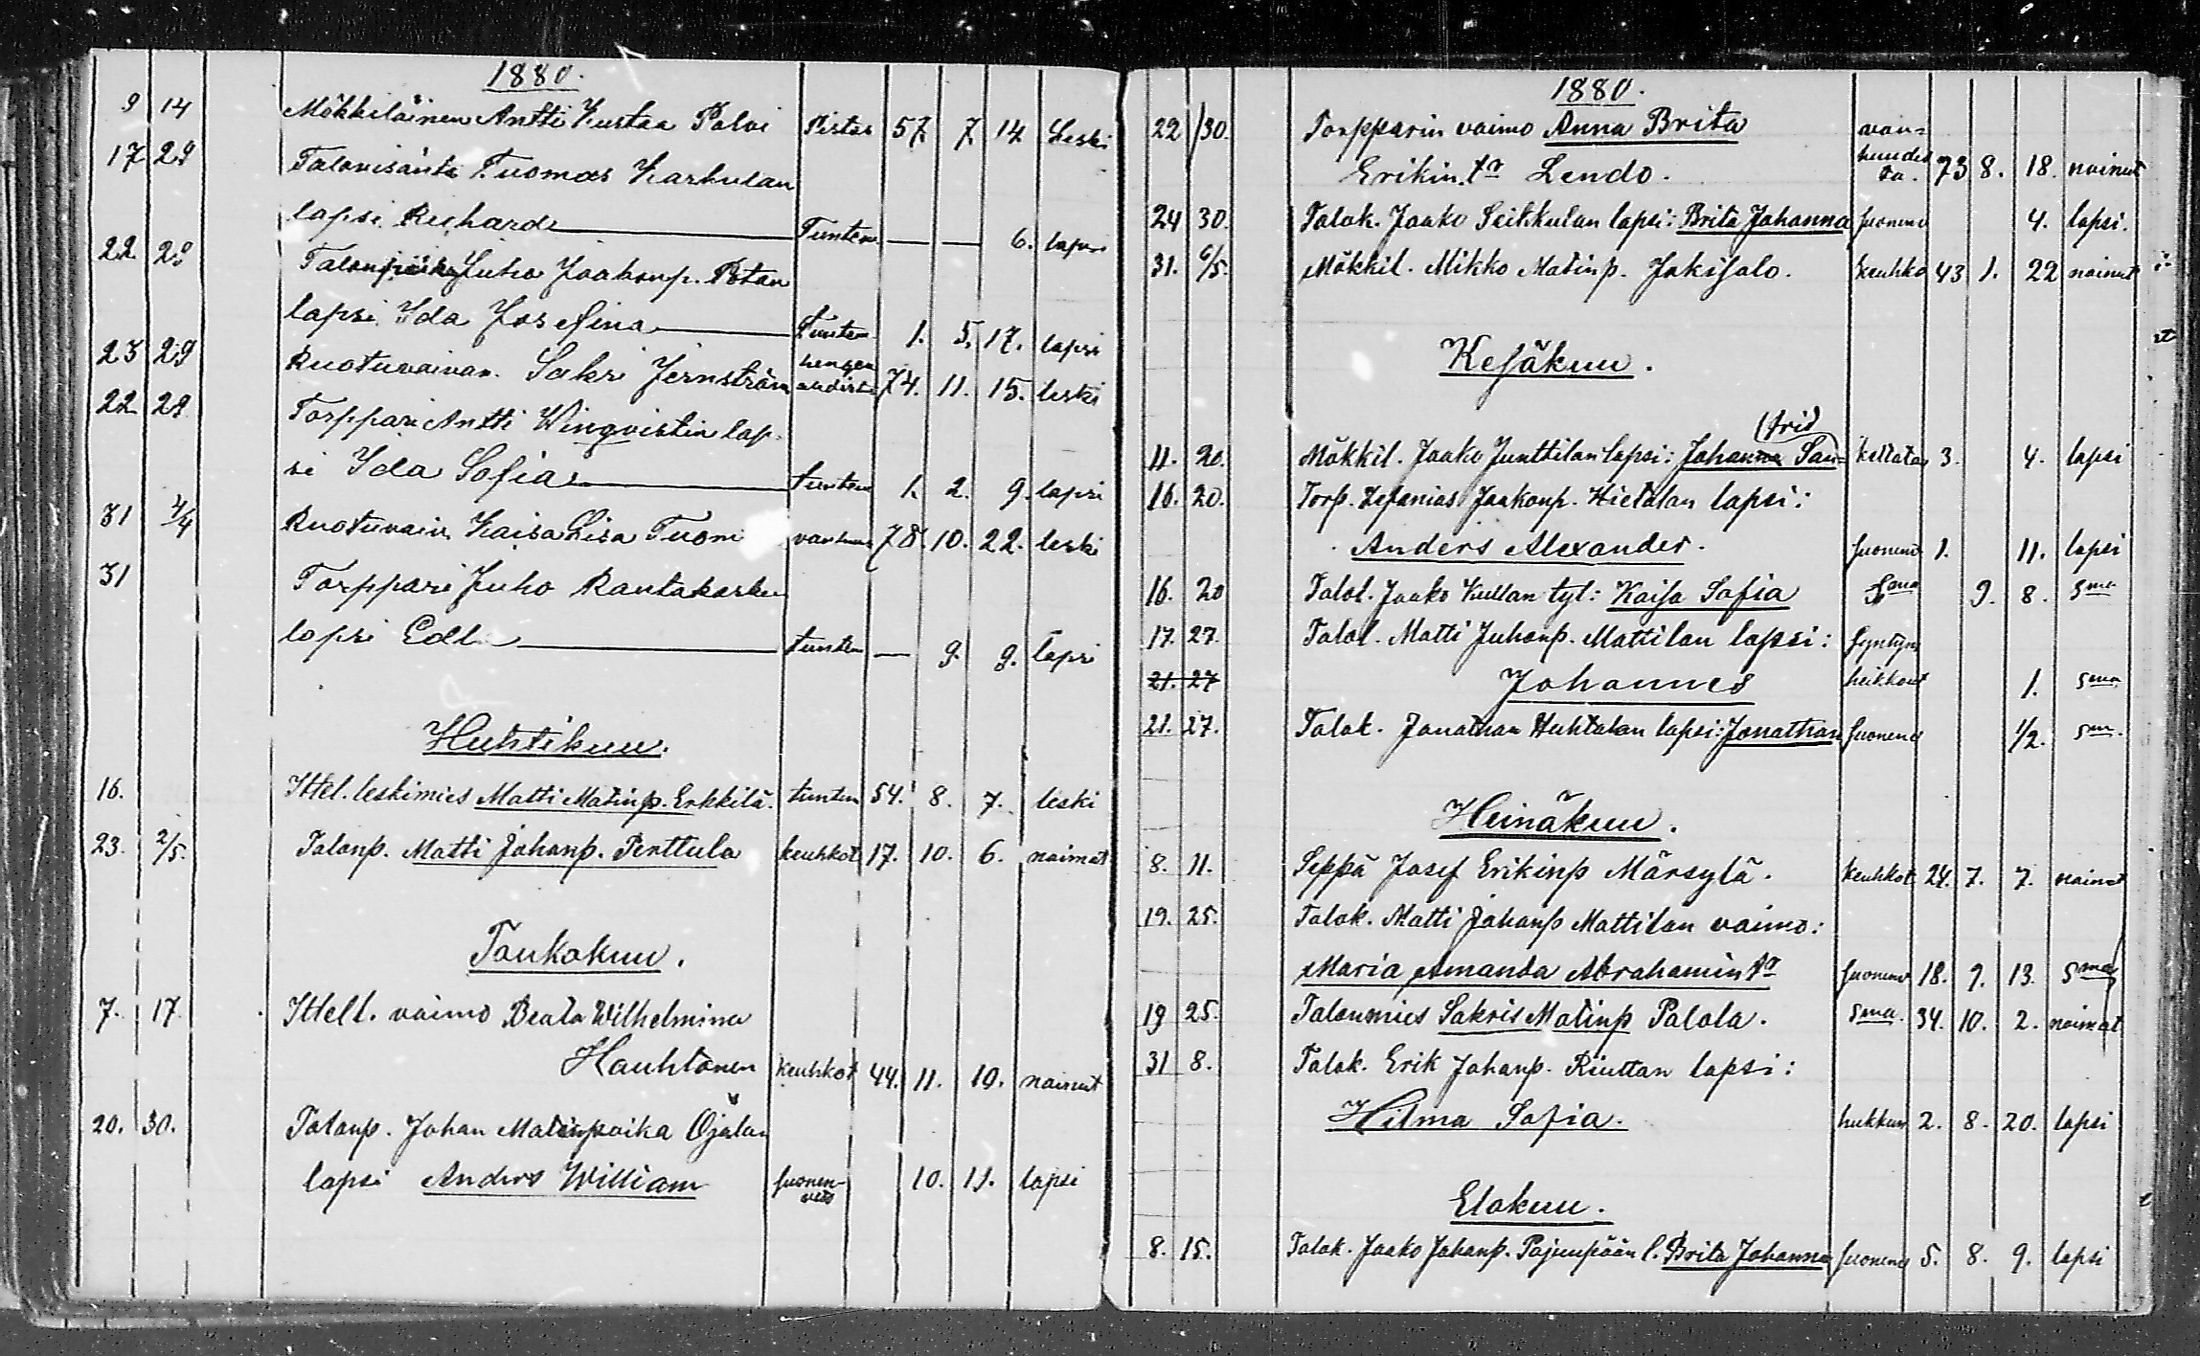 1880.
9 14 Mökkiläinen Antti Kustaa Palvi Pistos 57. 7. 14 Leski
17 29 Talonisäntä Tuomas Karhulan
lapsi Richard Tunten — — 6. lapsi
22. 29 Talonpoika Juho Jaakonp. Potan
lapsi Ida Josefina Tunten 1. 5. 17. lapsi
23 29 Ruotuvaivan. Sakri Jernström hengen ahdista 74. 11. 15. leski
22 29 Torppari Antti Wingvistin lap-
si Ida Sofia tunten 1. 2. 9. lapsi
31 4/4 Ruotuvaiv. Kaisa Lisa Tuomi vanhuus 78. 10. 22. leski
31 Torppari Juho Rautakosken
lapsi Edla tunten — 9. 9. lapsi
Huhtikuu.
16. Ittel. leskimies Matti Matinp. Erkkilä. tunten 54. 8. 7. leski
23. 2/5. Talonp. Matti Johanp. Penttula keuhkot 17. 10. 6. naimat
Toukokuu.
7. 17 Ittell. vaimo Beata Wilhelmina
Hauhtonen keuhkot 44. 11. 10. nainut
20. 30. Talonp. Johan Matinpoika Ojalan
lapsi Anders William suonen-
veto 10. 11. lapsi
1880.
22 /30. Torpparin vaimo Anna Brita van-
Erikin ta Lendo. huudes
ta. 73 8. 18. nainut
24 30. Talok. Jaako Seikkulan lapsi: Brita Johanna suonenv 4. lapsi.
31. 6/5. Mökkil. Mikko Matinp. Jokisalo. keuhko 43 1. 22 nainut
Kesäkuu.
frid
11. 20. Mökkil. Jaako Junttilan lapsi: Johanna San= keltatau 3. 4. lapsi
16. 20. Torp. Zefanias Jaakonp. Hietalan lapsi:
Anders Alexander. suonenv 1. 11. lapsi
16. 20 Talol. Jaako Kullan tyt: Kaisa Sofia Sma 9. 8. Sma
17. 27. Talol. Matti Juhanp. Mattilan lapsi: syntym
21. 27 Johannes heikkout 1. Sma
21. 27. Talok. Jonathan Huhtalan lapsi: Jonathan suonenv 1/2. Sma.
Heinäkuu.
8. 11. Seppä Josef Erikinp Märsylä. keuhkot 24. 7. 7. nainut
19. 25. Talok. Matti Johanp Mattilan vaimo:
Maria Amanda Abrahamin ta suonenv 18. 9. 13. Sma
19 25. Talonmies Sakris Matinp Palola. Sma. 34. 10. 2. naimat
31 8. Talok. Erik Johanp. Riuttan lapsi:
Hilma Sofia. hukkun 2. 8. 20. lapsi
Elokuu.
8. 15. Talok. Jaako Johanp. Pajuupään l. Brita Johanna suonenv 5. 8. 9. lapsi